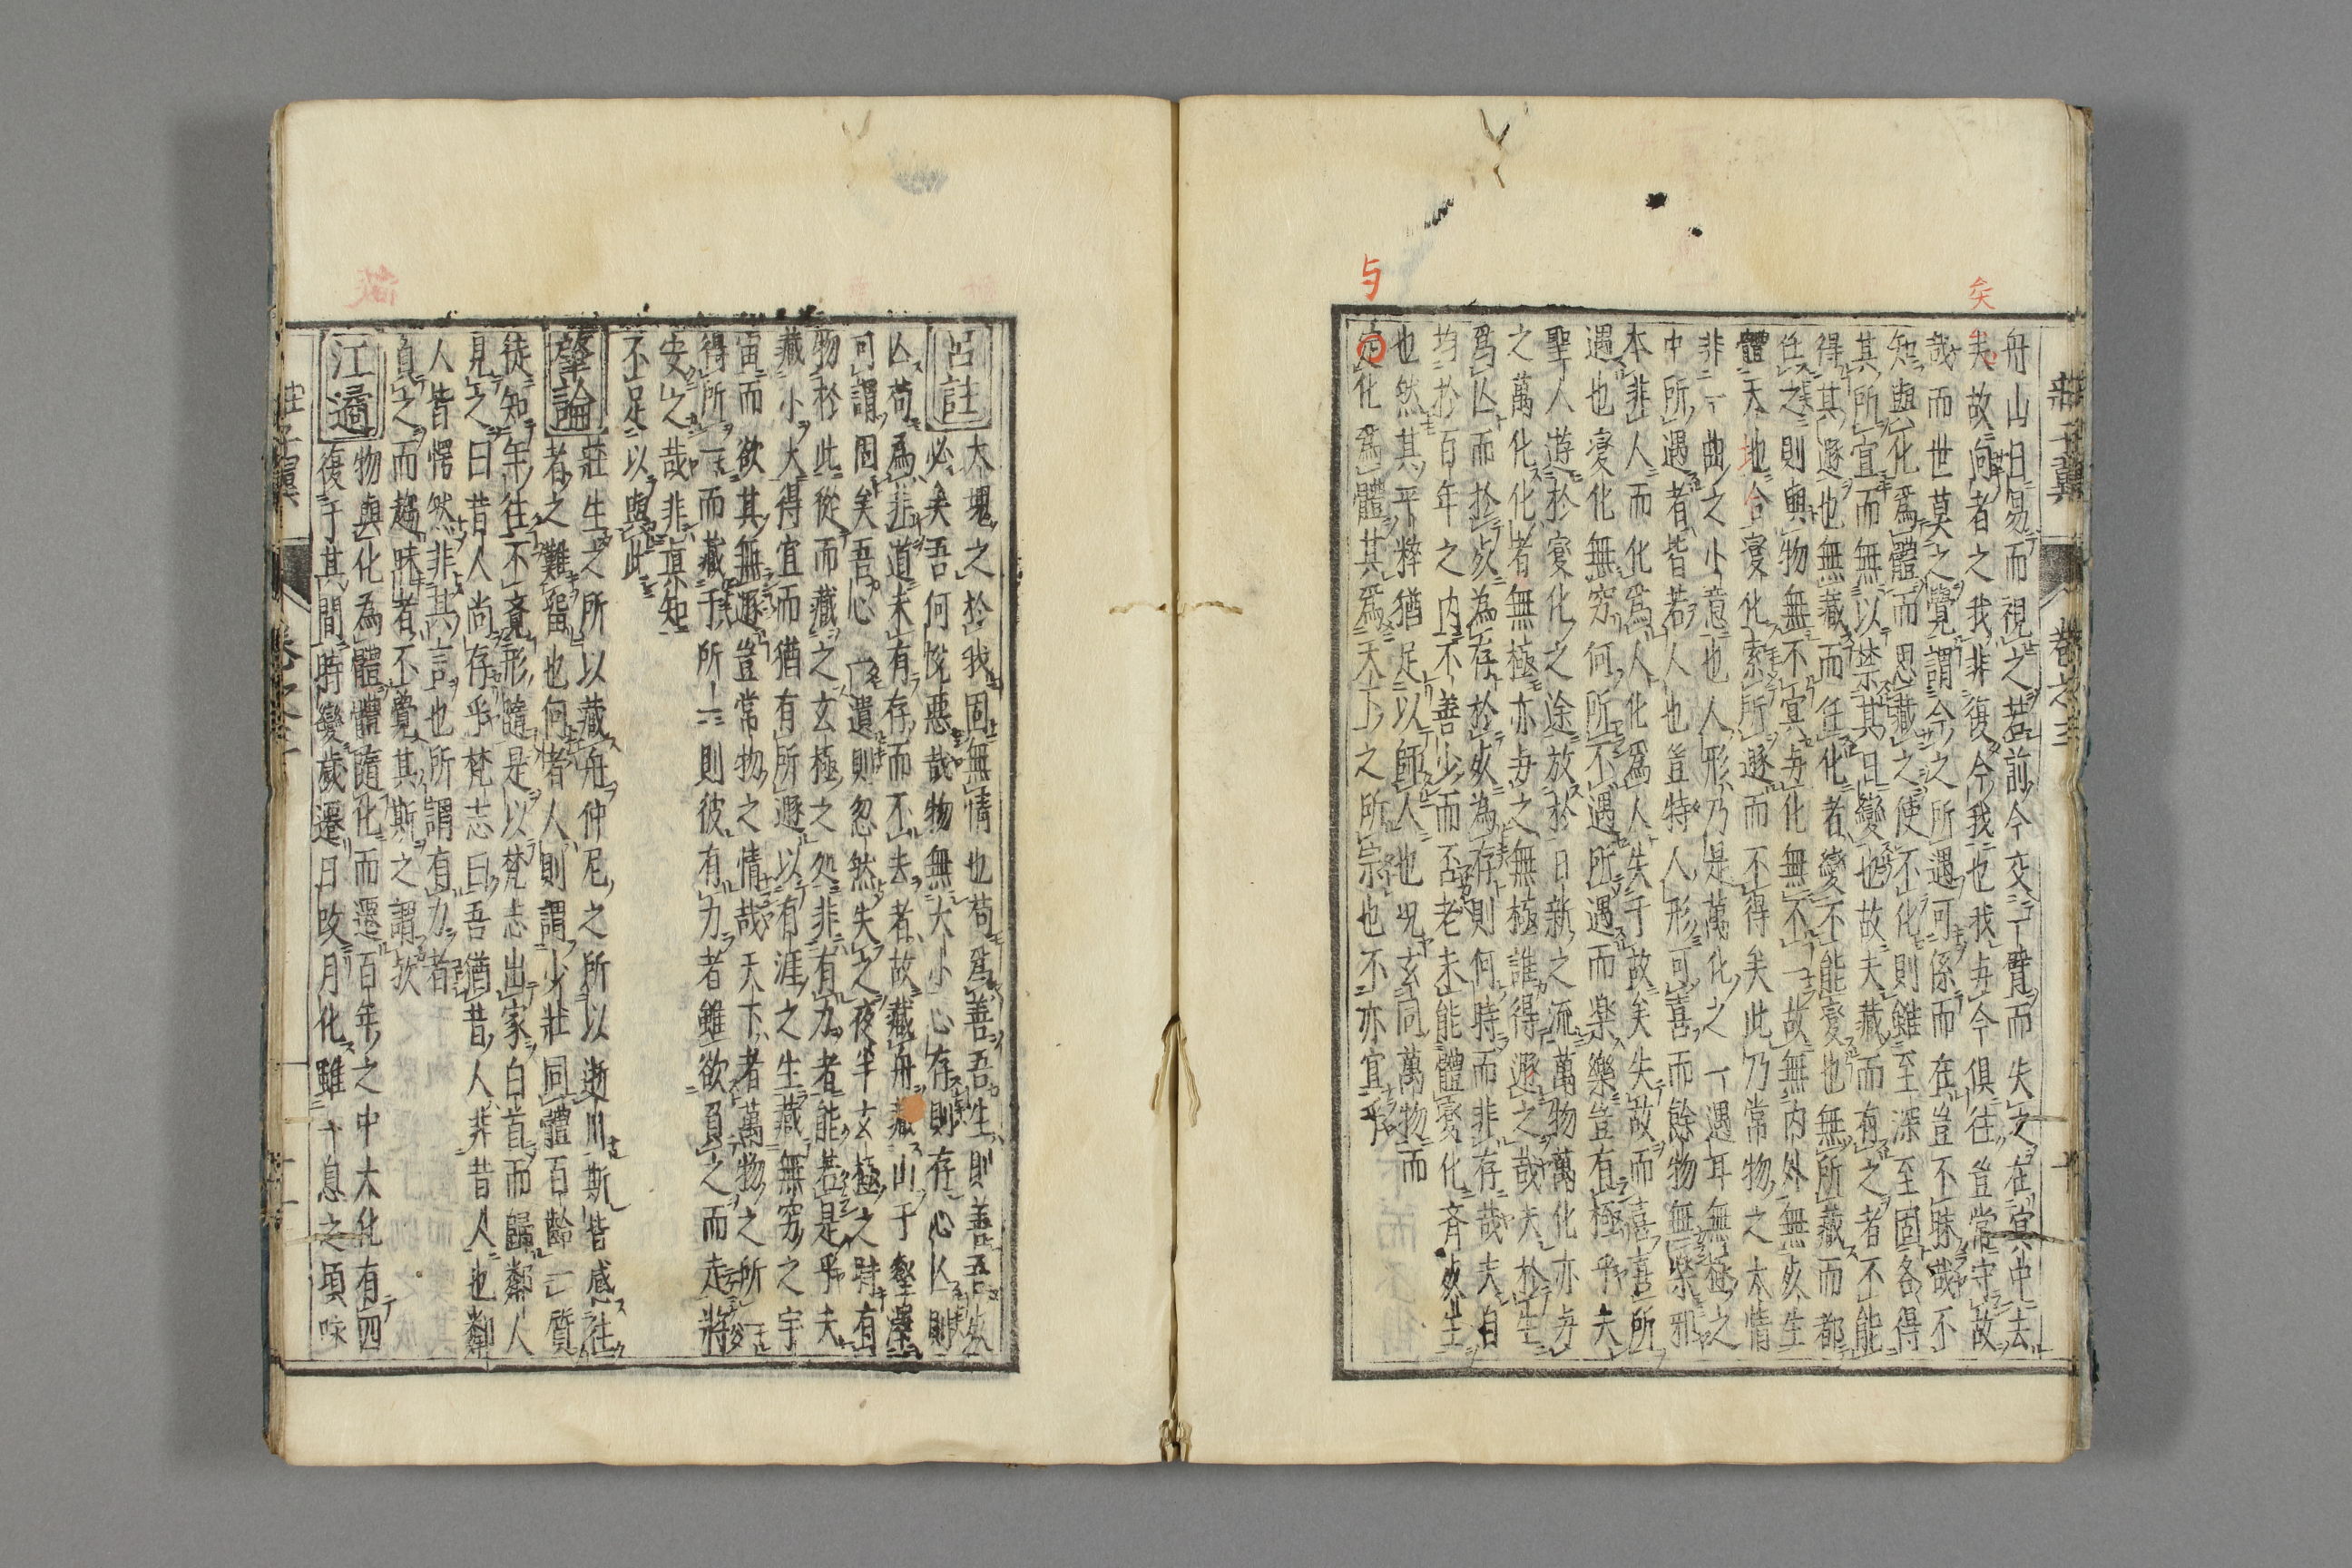 莊子翼 卷之三
舟山日易而視之若前今交一臂而失之在冥中去
矣故向者之我非復今我也我与今俱往豈常守故
哉而世莫之覺謂今之所遇可係而在豈不昧哉不
知與化爲體而思藏之使不化則雖至深至固各得
其所宜而無以禁其日變也故夫藏而有之者不能
得其遯也無藏而任化者變不能変也無所藏而都
任之則與物無不冥与化無不一故無内外無死生
體天地合変化索所遯而不得矣此乃常物之大情
非一曲之小意也人形乃是萬化之一遇耳無極之
中所遇者皆若人也豈特人形可喜而餘物無樂邪
本非人而化爲人化爲人失于故矣失故而喜喜所
遇也変化無窮何所不遇所遇而楽樂豈有極乎夫
聖人遊於変化之途放於日新之流萬物萬化亦与
之萬化化者無極亦与之無極誰得遯之哉夫於生
爲亾而於死為存於死為存則何時而非存哉夫自
均於百年之内不善少而否老未能體変化斉死生
也然其平粹猶足以師人也况玄同萬物而
与
矣
定化爲體其爲天下之所宗也不亦宜乎
呂註 大塊之於我固無情也苟爲善吾生則善吾死
必矣吾何悅惡哉物無大小心存則存心亾則
亾苟爲非道未有存而不去者故藏舟藏山于壑澤
可謂固矣吾心一遺則忽然失之夜半玄極之時有
物於此從而藏之玄極之処非有力者能若是乎夫
藏小大得宜而猶有所遯以有涯之生藏無窮之宇
宙而欲其無遯豈常物之情哉天下者萬物之所一
得所一而藏于所一則彼有力者雖欲負之而走將
安之哉非真知
不足以與此
肇論 莊生之所以藏舟仲尼之所以逝川斯皆感往
者之難畱也何者人則謂少壯同體百齡一質
徒知年往不竟形隨是以梵志出家白首而歸鄰人
見之曰昔人尚存乎梵志曰吾猶昔人非昔人也鄰
人皆愕然非其言也所謂有力者
負之而趨昧者不覺其斯之謂欤
江遹 物與化為體體隨化而遷百年之中大化有四
復于其間時變歲遷日改月化雖一息之頃咏